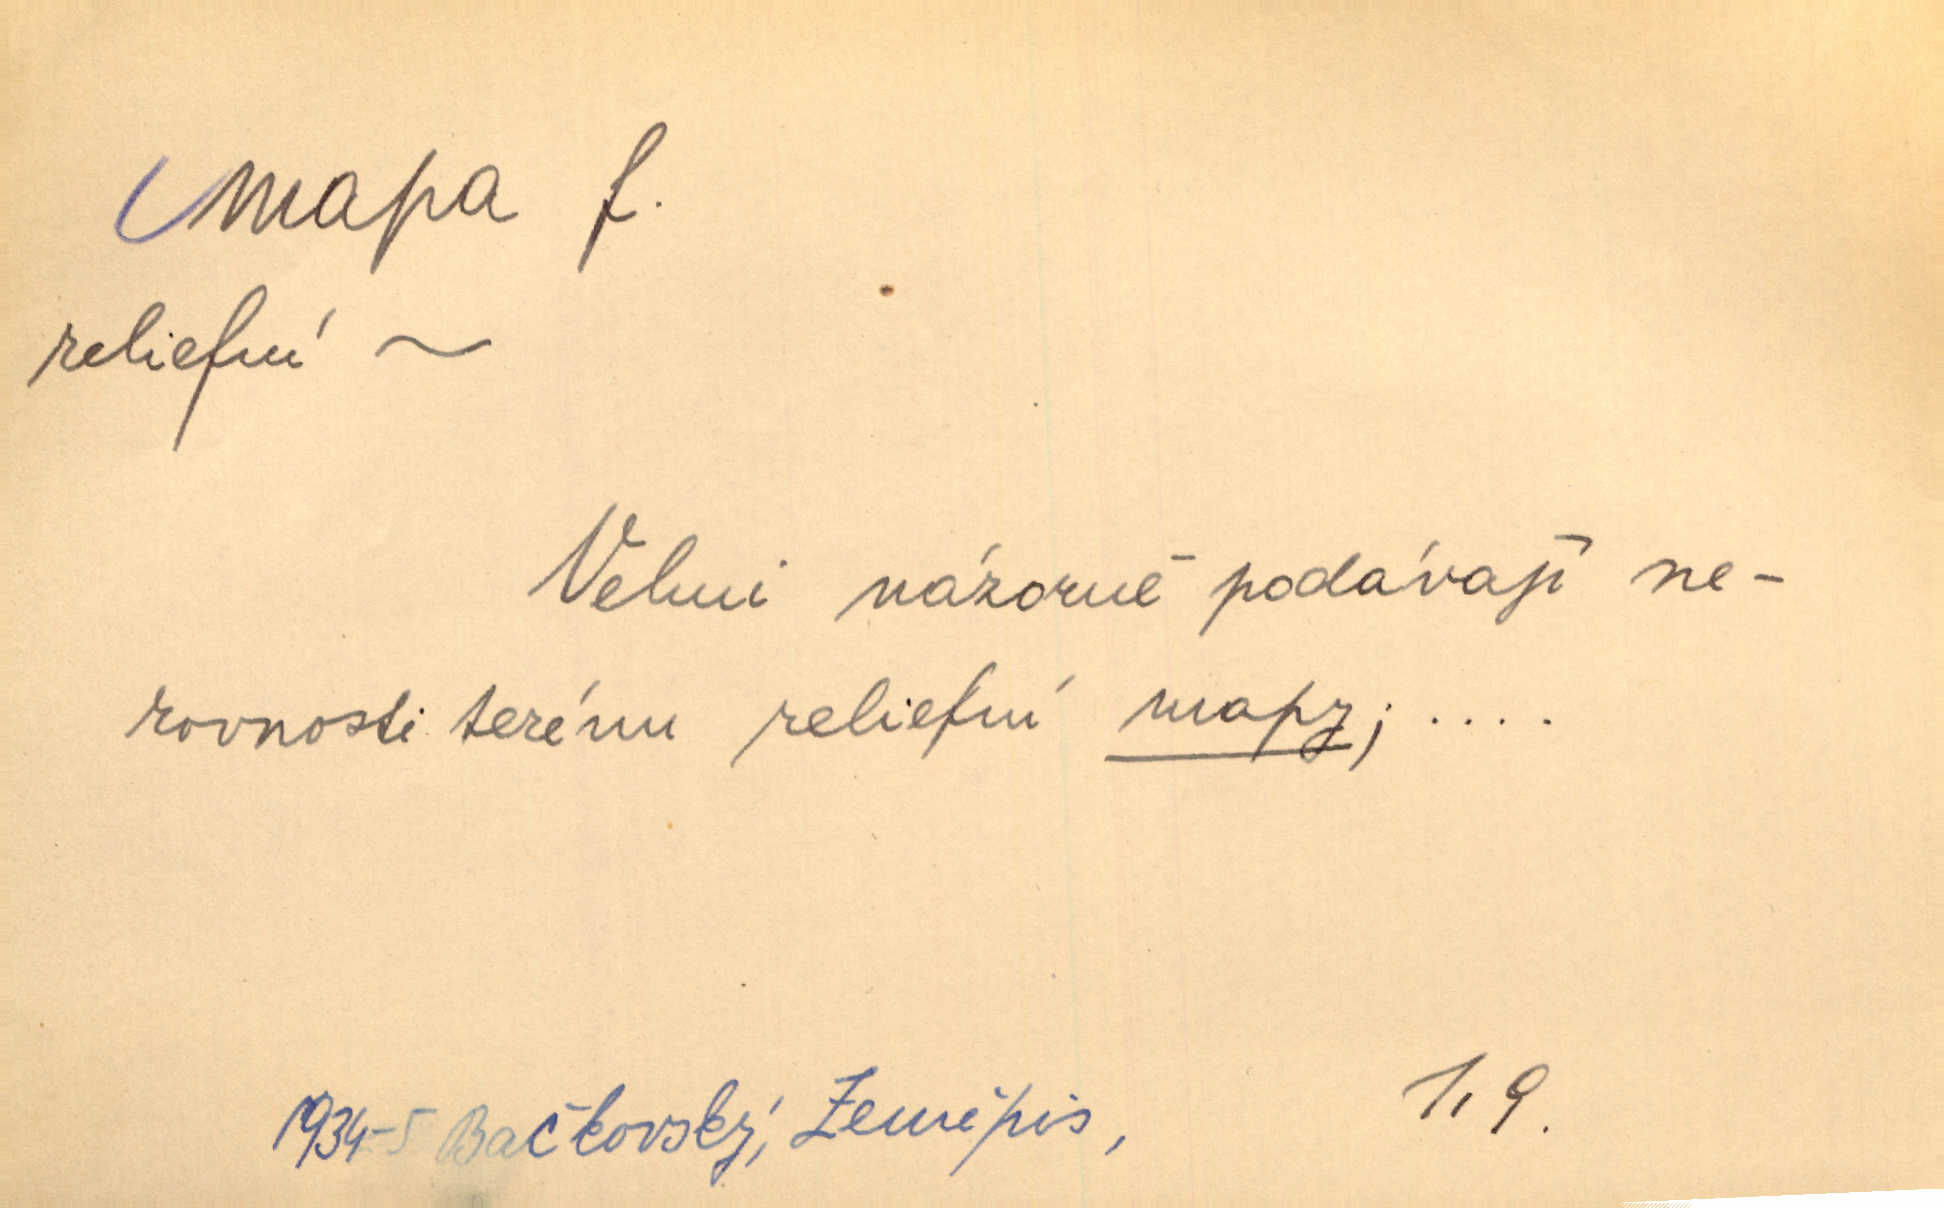 mapa f.
reliefní ~
Velmi názorně podávají ne-
rovnosti terénu reliefní mapy; ....
1934-5 Bačkovský, Zeměpis, 1, 9.